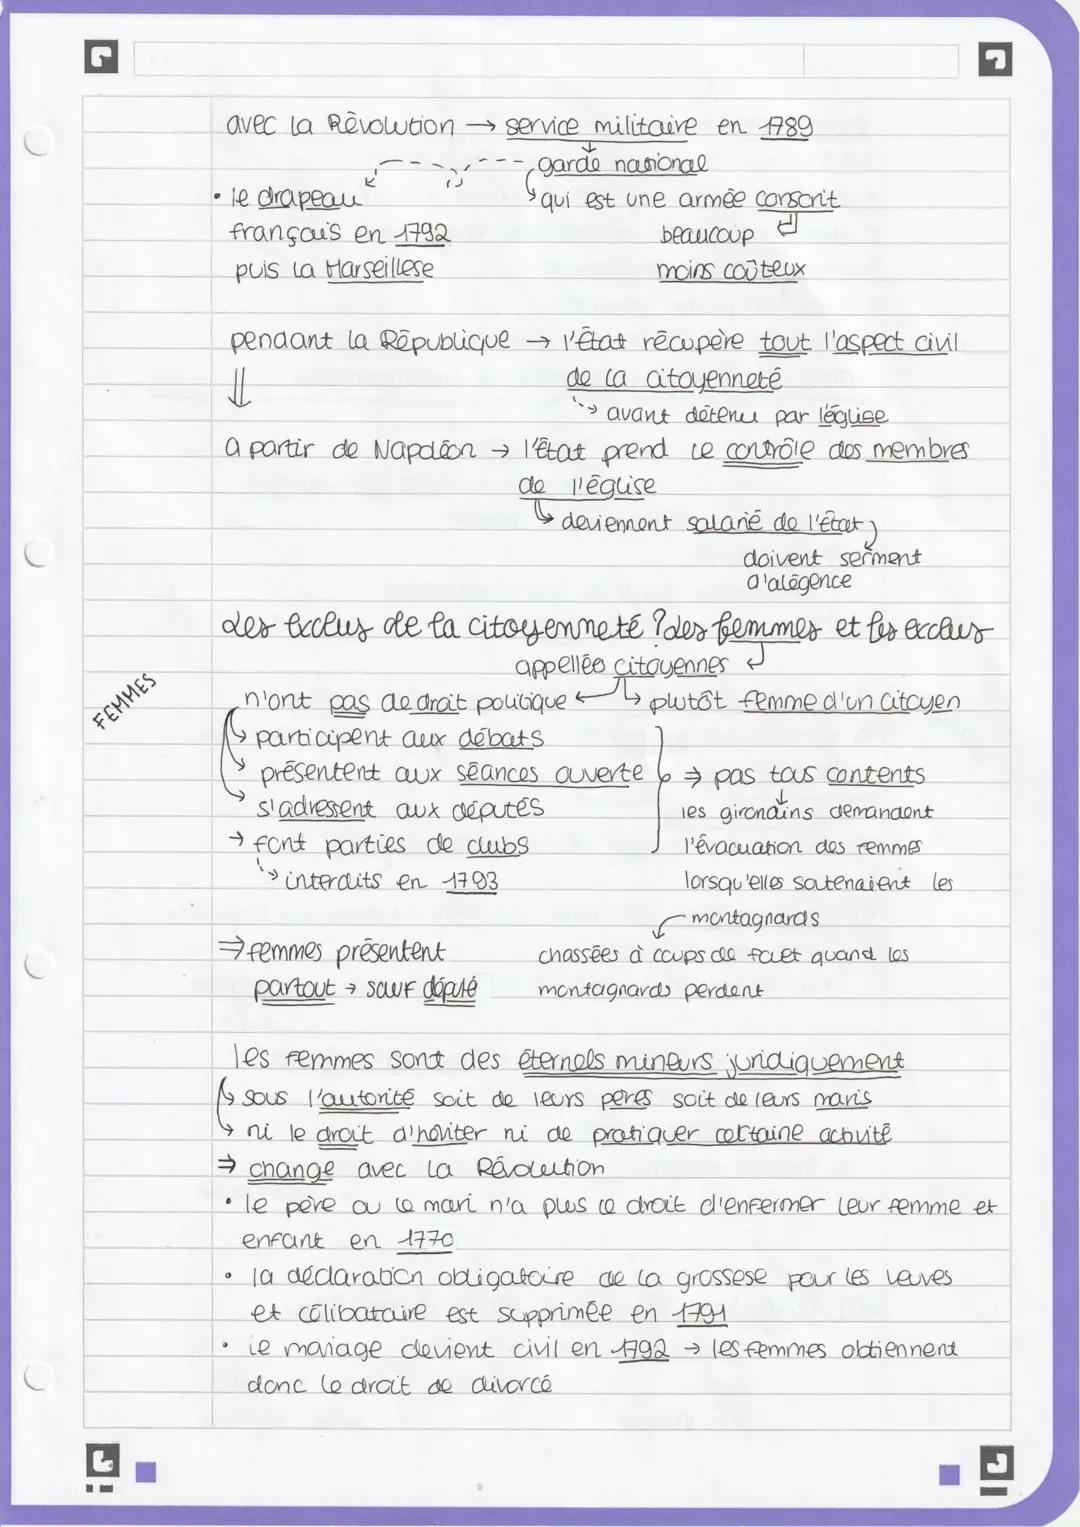 avec la Révolution → service militaire en 1789
garde nasional
• le drapeau
qui est une armée conscrit
français en 1792
beaucoup
puis la Marseillese
moins coûteux
pendant la République → l'État récupère tout l'aspect civil
de la citoyenneté
avant détenu par l'église
a partir de Napoléon → l'État prend le contrôle des membres
de l'église
deviennent salarié de l'État
doivent serment
d'alégence
Les exclus de la citoyenneté ? Les femmes et les exclus
appellées citoyennes
FEMMES
n'ont pas de droit politique
plutôt femme d'un citoyen
participent aux débats
présentent aux séances ouverte ⇒ pas tous contents
s'adressent aux députés
les girondins demandent
→ font parties de clubs
l'évacuation des femmes
interdits en 1793
lorsqu'elles soutenaient les
montagnards
⇒ femmes présentent
chassées à coups de fouet quand les
partout → sauf député
montagnards perdent
les femmes sont des éternels mineurs juridiquement
sous l'autorité soit de leurs pères soit de leurs maris
ni le droit d'hériter ni de pratiquer certaine activité
⇒ change avec la Révolution
• le père ou le mari n'a plus le droit d'enfermer leur femme et
enfant en 1770
• la déclaration obligatoire de la grossese pour les veuves
et célibataire est supprimée en 1791
• le mariage devient civil en 1792 → les femmes obtiennent
donc le droit de divorcé